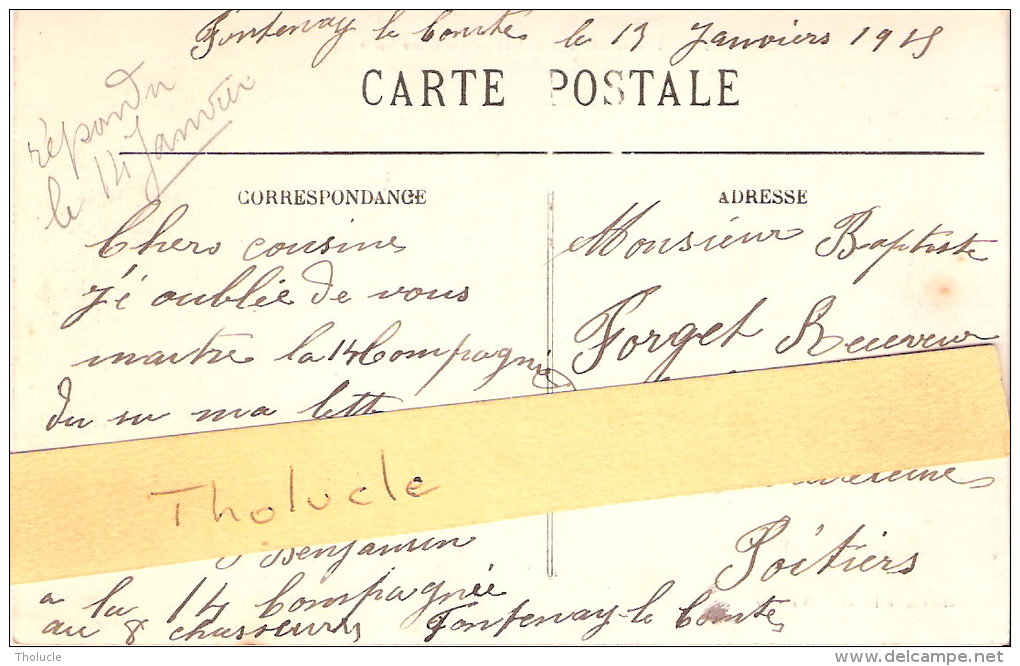 Fontenay le Comte le 13 Janviers 1915
répondu
le 14 Janvier
CARTE POSTALE
CORRESPONDANCE
Chers cousins
J'é oublée de vous
maitre la 14 Compagnie
du su ma lett
Benjamin
a la 14 Compagnée
au 8 chasseurs Fontenay-le Comte
ADRESSE
Monsieur Baptiste
Forget Receveur
Poitiers
Tholucle
Tholucle
www.delcampe.net